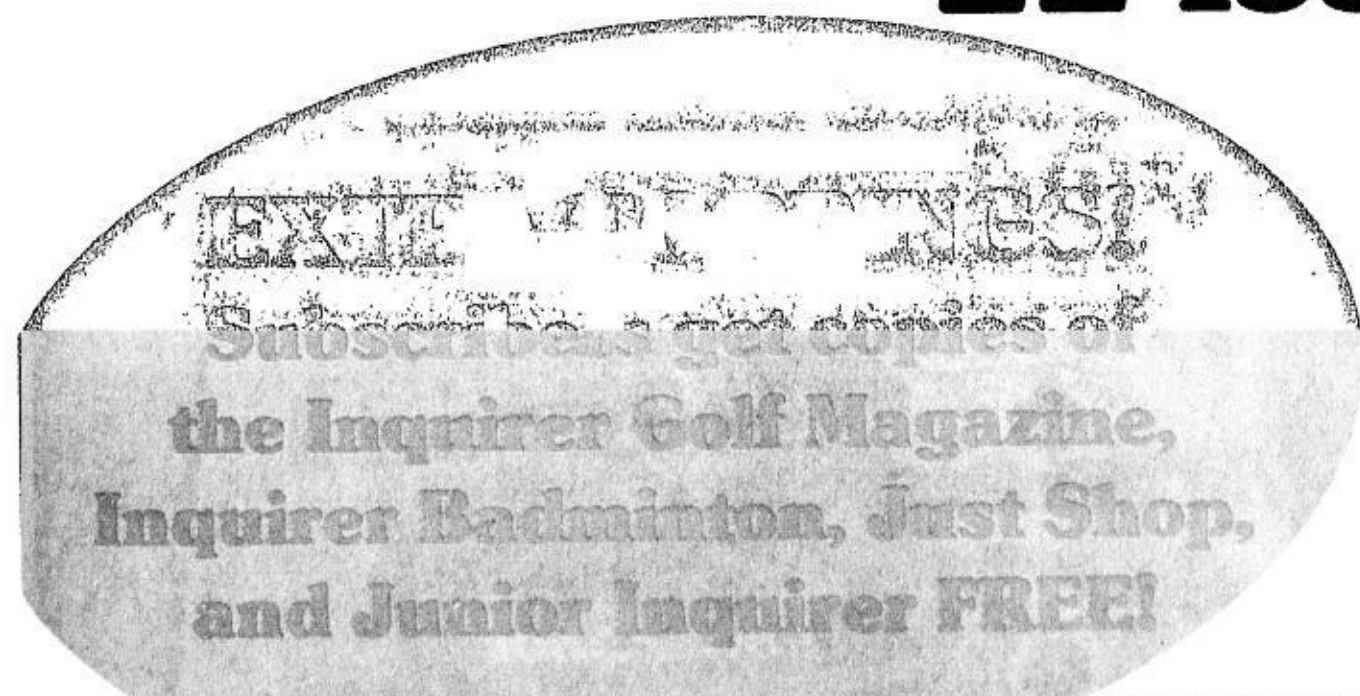 Subscribers get copies of
the Inquirer Golf Magazine,
Inquirer Badminton, Just Shop,
and Junior Inquirer FREE!